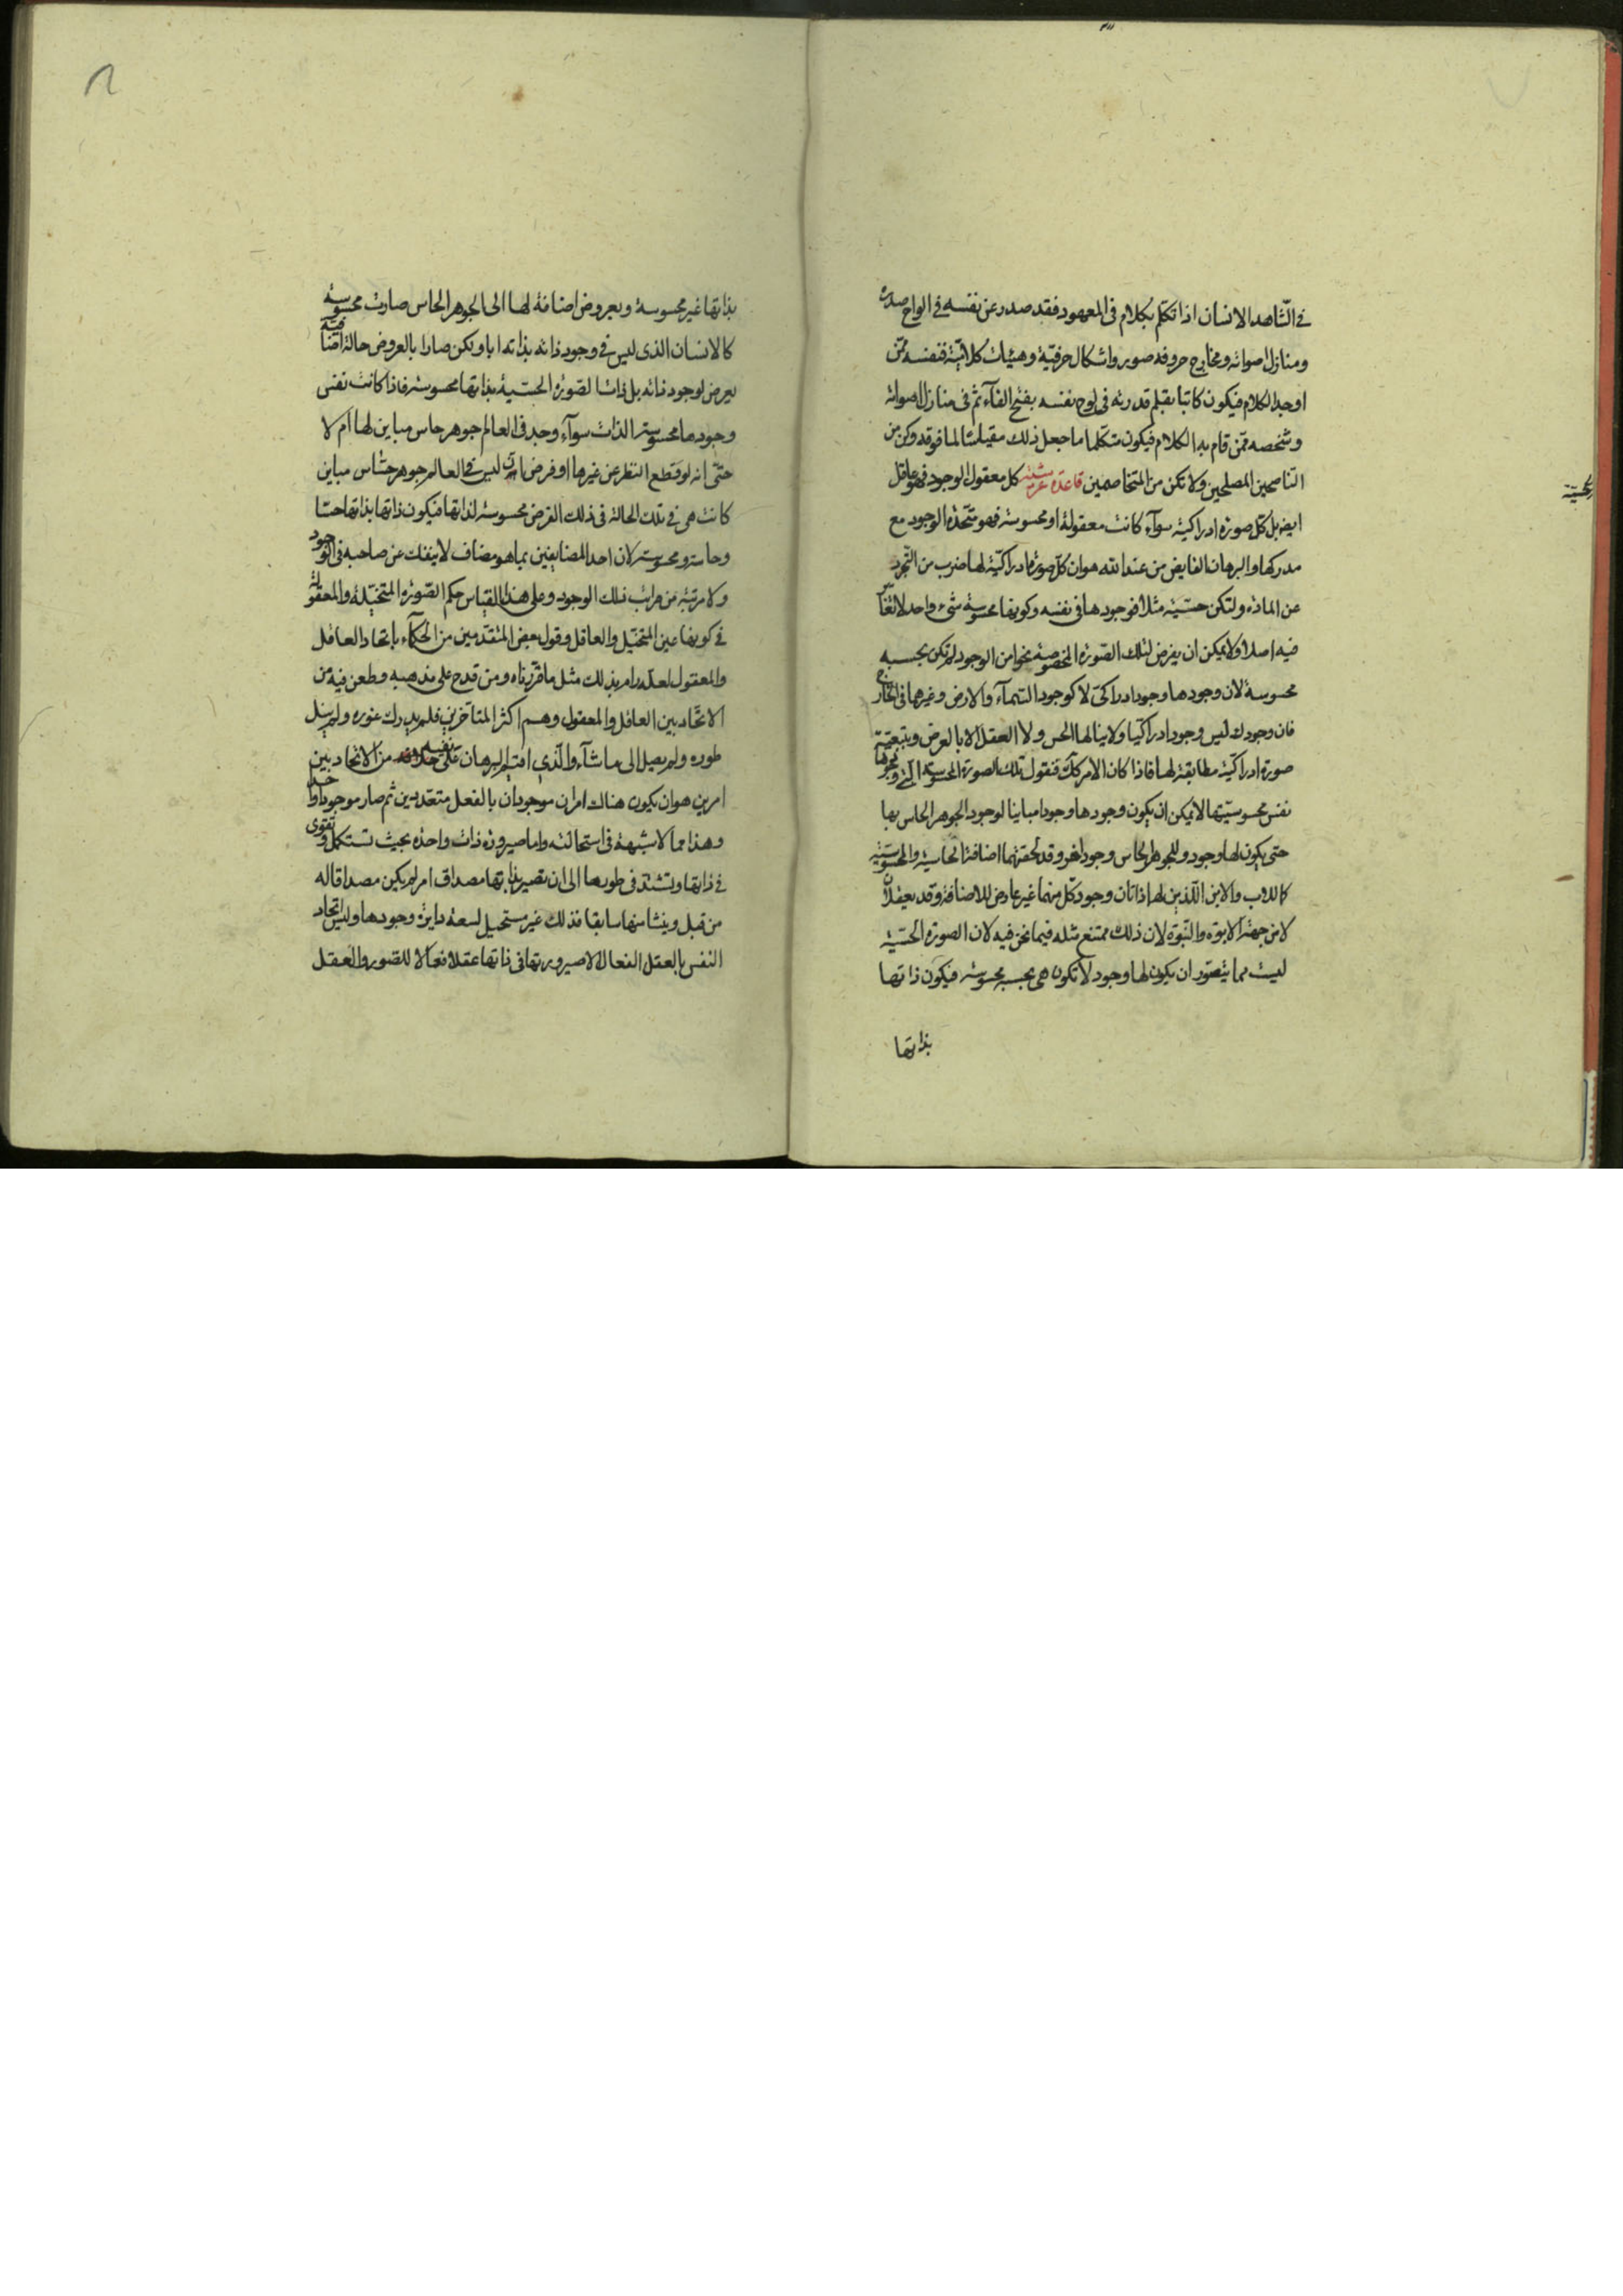 في الشاهد الانسان اذا تكلم بكلام في المعهود فقد صدر عن نفسه في الواح صدره
ومنازل اصواته ومخارج حروفه صور واشكال حرفية وهيئات كلامية فنفسه ممن
اوجد الكلام فيكون كاتبا بقلم قدرته في لوح نفسه بفتح الفآء ثم في منازل اصواته
وشخصه ممن قام به الكلام فيكون متكلما فاجعل ذلك مقياسا لما فوقه وكن من
الناصحين المصلحين ولا تكن من المتخاصمين قاعدة عرشية كل معقول الوجود فهو عاقل
ايض بل كل صورة ادراكية سوآء كانت معقولة او محسوسة فهو متحدة الوجود مع
مدركها والبرهان الفايض من عند الله هو ان كل صورة ادراكية لها ضرب من التجرد
عن المادة ولتكن حسية مثلا فوجودها في نفسه وكونها محسوسة شيء واحد لا تغاير
فيه اصلا ولا يمكن ان يفرض لتلك الصورة المخصوصة نحو من الوجود لم تكن بحسبه
محسوسة لان وجودها وجود ادراكي لا كوجود السمآء والارض وغيرها في الخارج
فان وجودك ليس وجودا ادراكيا ولا ينالها الحس ولا العقل الا بالعرض وبتبعية
صورة ادراكية مطابقة لها فاذا كان الامر كك فنقول تلك الصورة المحسوسة التي وجودها
نفس محسوسيتها لا يمكن ان يكون وجودها وجودا مباينا لوجود الجوهر الحاس بها
حتى يكون لها وجود وللجوهر الحاس وجود اخر وقد لحقتهما اضافة الحاسية والمحسوسية
كاللاب والابن اللذين لهما ذاتان وجود كل منهما غير عارض للاضافة وقد يعقلان
لا من جهة الابوة والنبوة لان ذلك ممتنع مثله فيما نحن فيه لان الصورة الحسية
ليست مما يتصور ان يكون لها وجود لا تكون هي بحسبه محسوسة فيكون ذاتها
بذاتها
بذاتها غير محسوسة وبعروض اضافة لها الى الجوهر الحاس صارت محسوسة
كالانسان الذي ليس في وجود ذاته بذاته ابا ولكن صار ابا لعروض حالة اضافية
يعرض لوجود ذاته بل ذات الصورة الحسية بذاتها محسوسة فاذا كانت نفس
وجودها محسوسة الذات سوآء وجد في العالم جوهر حاس مباين لها ام لا
حتى انه لو قطع النظر عن غيرها او فرض ان ليس في العالم جوهر حساس مباين
كانت هي في تلك الحالة في ذلك الفرض محسوسة لذاتها فيكون ذاتها بذاتها حسا
وحاسة ومحسوسة لان احد المضايفين بما هو مضاف لا ينفك عن صاحبه في الوجود
ولا مرتبة من مراتب ذلك الوجود وعلى هذا القياس حكم الصورة المتخيلة والمعقولة
في كونها عين المتخيل والعاقل وقول بعض المتقدمين من الحكمآء باتحاد العاقل
والمعقول لعله رام بذلك مثل ما قررناه ومن قدح على مذهبه وطعن فيه من
الاتحاد بين العاقل والمعقول وهم اكثر المتاخرين فلم يدرك غوره ولم ينل
طوره ولم يصل الى ما شآء والذي اقيم البرهان على نفيه من الاتحاد بين
امرين هو ان يكون هناك امران موجودان بالفعل متعددين ثم صار موجودا واحدا
وهذا مما لا شبهة في استحالته واما صيرورة ذات واحدة بحيث تستكمل وتقوى
في ذاتها وتشتد في طورها الى ان تصير بذاتها مصداق امر لم يكن مصداقا له
من قبل وينشا منها سابقا فذلك غير مستحيل لسعة دايرة وجودها وليس اتحاد
النفس بالعقل الفعال الا صيرورتها في ذاتها عقلا فعالا للصور والعقل